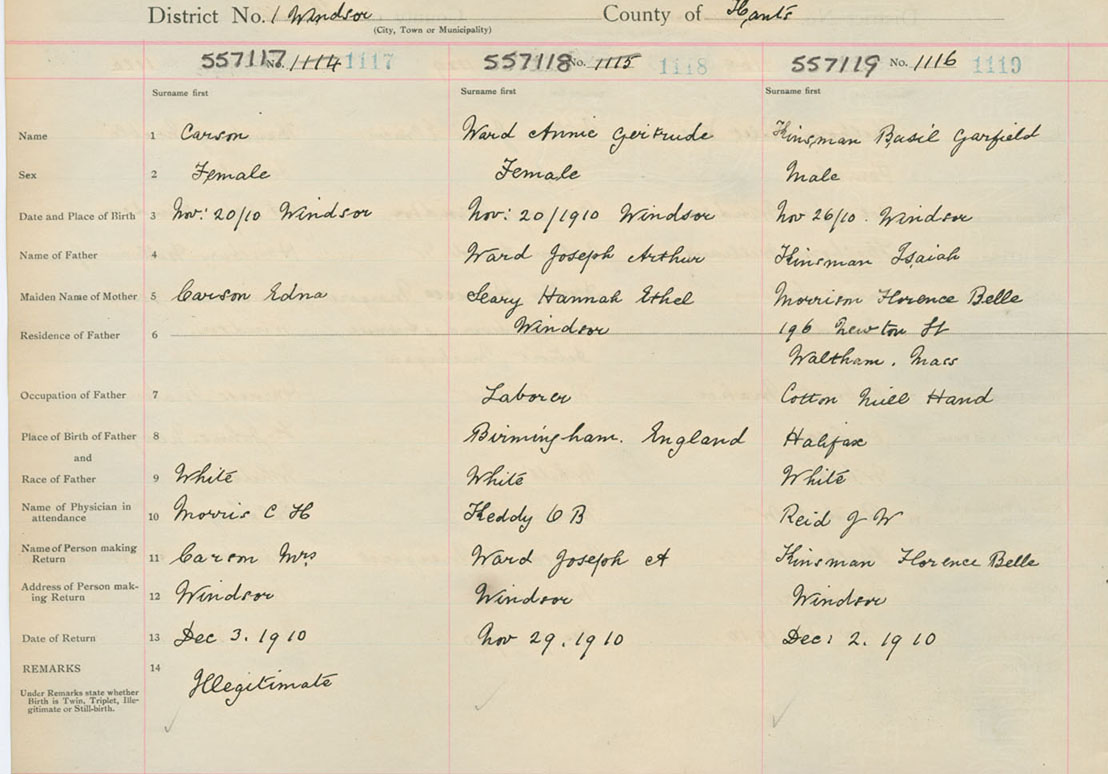 District No. 1 Windsor County of Hants
(City, Town or Municipality)
557117 No. 1114 1117 557118 No. 1115 1118 557119 No. 1116 1119
Surname first Surname first Surname first
Name 1 Carson Ward Annie Gertrude Kinsman Basil Garfield
Sex 2 Female Female Male
Date and Place of Birth 3 Nov: 20/10 Windsor Nov: 20/1910 Windsor Nov 26/10. Windsor
Name of Father 4 Ward Joseph Arthur Kinsman Isaiah
Maiden Name of Mother 5 Carson Edna Seary Hannah Ethel Morrison Florence Belle
Residence of Father 6 Windsor 196 Newton St
Waltham. Mass
Occupation of Father 7 Laborer Cotton Mill Hand
Place of Birth of Father 8 Birmingham. England Halifax
and
Race of Father 9 White White White
Name of Physician in
attendance 10 Morris C H Keddy O B Reid J W
Name of Person making
Return 11 Carson Mrs Ward Joseph A Kinsman Florence Belle
Address of Person mak-
ing Return 12 Windsor Windsor Windsor
Date of Return 13 Dec 3. 1910 Nov 29. 1910 Dec: 2. 1910
REMARKS 14 Illegitimate
Under Remarks state whether
Birth is Twin, Triplet, Ille-
gitimate or Still-birth.